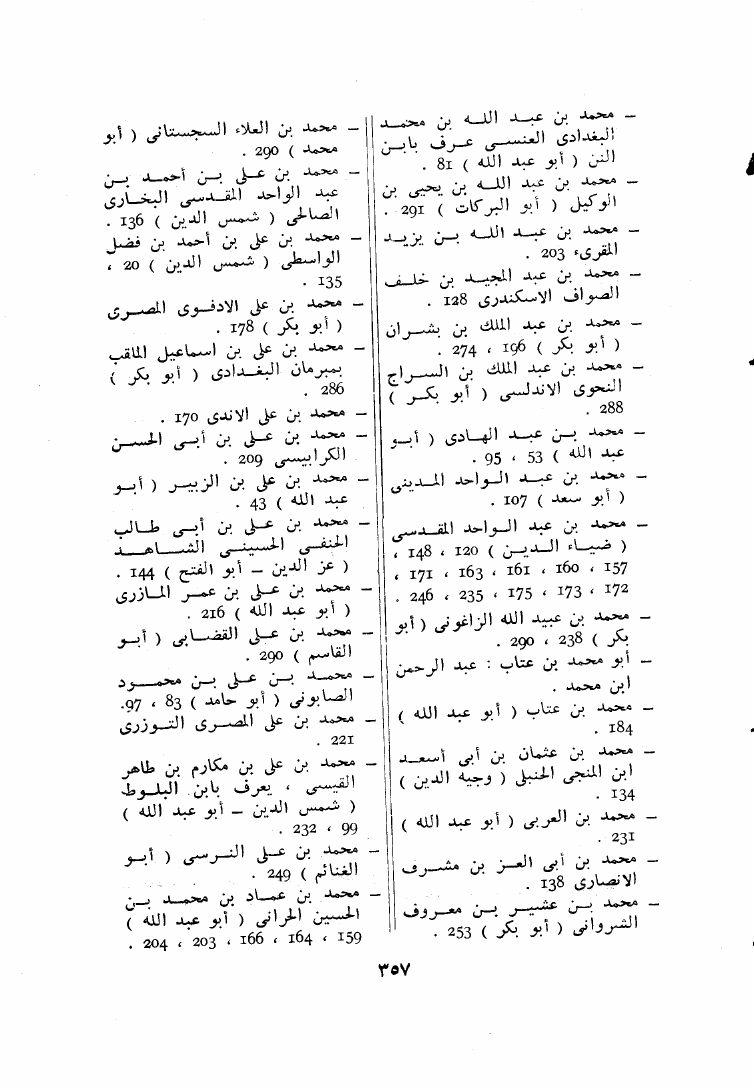 — محمد بن عبد الله بن محمد
البغدادى العنسى عرف بابن
النن ( أبو عبد الله ) 81 .
— محمد بن عبد الله بن يحيى بن
الوكيل ( أبو البركات ) 291 .
— محمد بن عبد الله بن يزيد
المقرىء 203 .
— محمد بن عبد المجيد بن خلف
الصواف الاسكندرى 128 .
— محمد بن عبد الملك بن بشران
( أبو بكر ) 196 ، 274 .
— محمد بن عبد الملك بن السراج
النحوى الاندلسى ( أبو بكر )
288 .
— محمد بن عبد الهادى ( أبو
عبد الله ) 53 ، 95 .
— محمد بن عبد الواحد المدينى
( أبو سعد ) 107 .
— محمد بن عبد الواحد المقدسى
( ضياء الدين ) 120 ، 148 ،
157 ، 160 ، 161 ، 163 ، 171 ،
172 ، 173 ، 175 ، 235 ، 246 .
— محمد بن عبيد الله الزاغونى ( أبو
بكر ) 238 ، 290 .
— أبو محمد بن عتاب : عبد الرحمن
ابن محمد .
— محمد بن عتاب ( أبو عبد الله )
184 .
— محمد بن عثمان بن أبى أسعد
ابن المنجى الحنبلى ( وجيه الدين )
134 .
— محمد بن العربى ( أبو عبد الله )
231 .
— محمد بن أبى العز بن مشرف
الانصارى 138 .
— محمد بن عشير بن معروف
الشروانى ( أبو بكر ) 253 .
— محمد بن العلاء السجستانى ( أبو
محمد ) 290 .
— محمد بن على بن أحمد بن
عبد الواحد المقدسى البخارى
الصالحى ( شمس الدين ) 136 .
— محمد بن على بن أحمد بن فضل
الواسطى ( شمس الدين ) 20 ،
135 .
— محمد بن على الادفوى المصرى
( أبو بكر ) 178 .
— محمد بن على بن اسماعيل الملقب
بمبرمان البغدادى ( أبو بكر )
286 .
— محمد بن على الاندى 170 .
— محمد بن على بن أبى الحسن
الكرابيسى 209 .
— محمد بن على بن الزبير ( أبو
عبد الله ) 43 .
— محمد بن على بن أبى طالب
الحنفى الحسينى الشاهد
( عز الدين — أبو الفتح ) 144 .
— محمد بن على بن عمر المازرى
( أبو عبد الله ) 216 .
— محمد بن على القضابى ( أبو
القاسم ) 290 .
— محمد بن على بن محمود
الصابونى ( أبو حامد ) 83 ، 97.
— محمد بن على المصرى التوزرى
221 .
— محمد بن على بن مكارم بن طاهر
القيسى ، يعرف بابن البلوط
( شمس الدين — أبو عبد الله )
99 ، 232 .
— محمد بن على النرسى ( أبو
الغنائم ) 249 .
— محمد بن عماد بن محمد بن
الحسين الحرانى ( أبو عبد الله )
159 ، 164 ، 166 ، 203 ، 204 .
٣٥٧